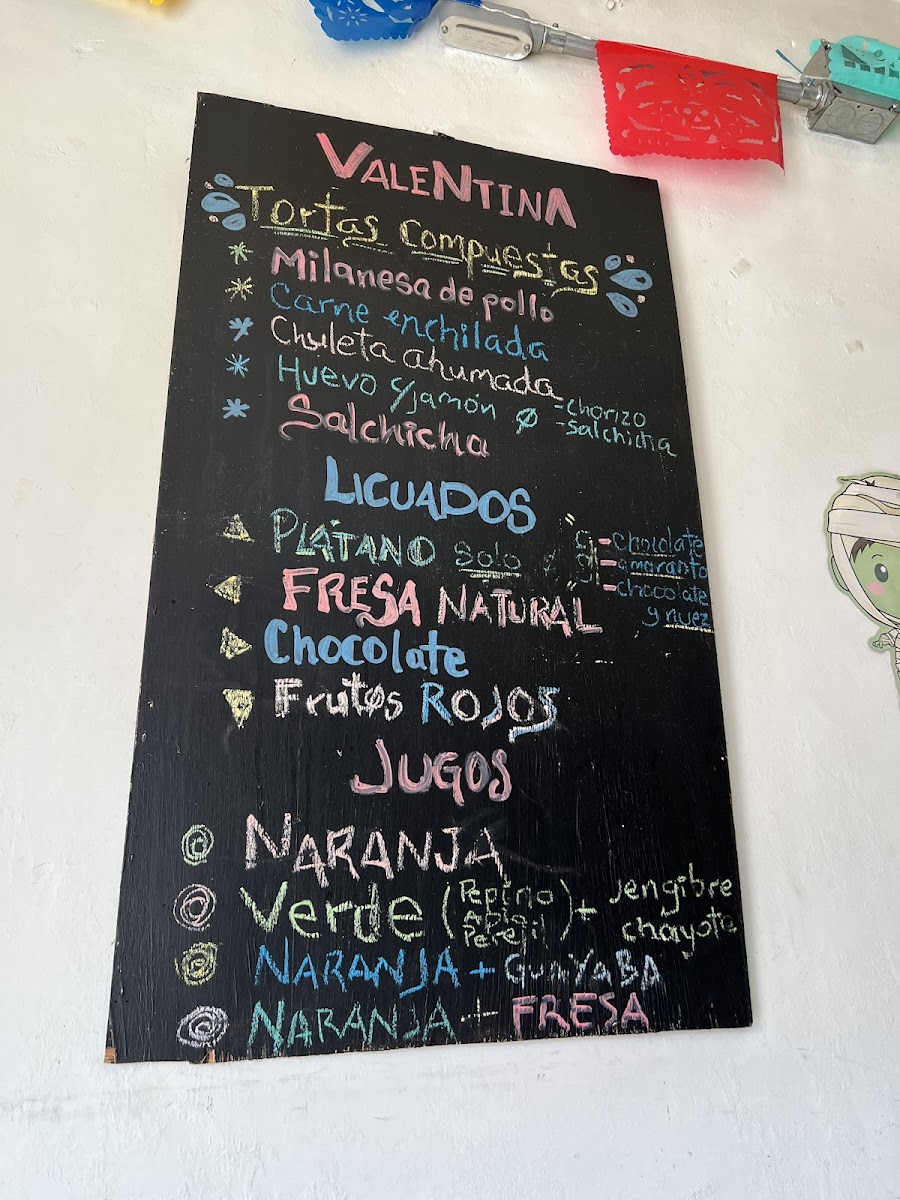 VALENTINA
Tortas compuestas
Milanesa de pollo
Carne enchilada
Chuleta ahumada
Huevo c/jamón ó -chorizo
-salchicha
Salchicha
LICUADOS
PLÁTANO solo ó c/ -chocolate
-amaranto
-chocolate
y nuez
FRESA NATURAL
Chocolate
Frutos ROJOS
JUGOS
NARANJA
Verde (Pepino
Apio
Perejil) + jengibre
chayote
NARANJA + GUAYABA
NARANJA + FRESA